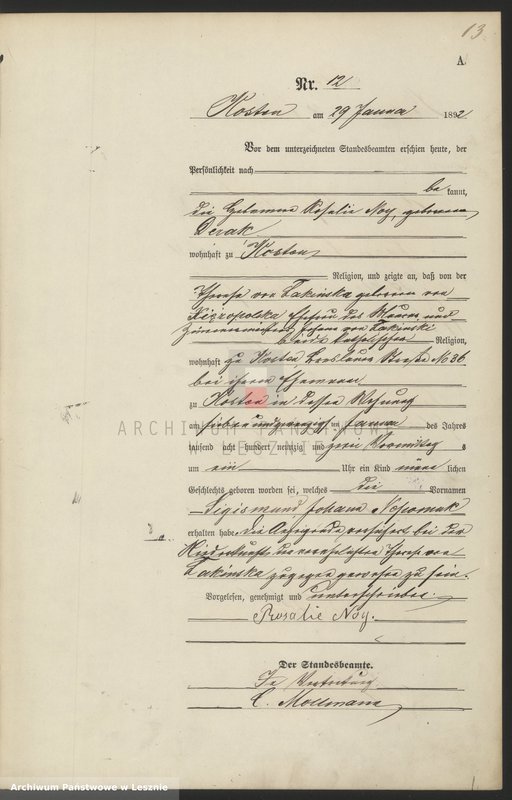 13
A.
Nr. 12
Kosten am 29 Januar 1892.
Vor dem unterzeichneten Standesbeamten erschien heute, der
Persönlichkeit nach
be kannt,
die Hebamme Rosalie Noy, geborene
Derak
wohnhaft zu Kosten
Religion, und zeigte an, daß von der
Therese von Lakinska geborene von
Niezropolska Ehefrau des Maurer und
Zimmermeisters Johann von Lakinski
beide katholischer Religion,
wohnhaft zu Kosten Breslauer Straße № 36
bei ihrem Ehemann
zu Kosten in dessen Wohnung
am sieben und zwanzigsten Januar des Jahres
tausend acht hundert neunzig und zwei Vormittag s
um ein Uhr ein Kind männ lichen
Geschlechts geboren worden sei, welches die Vornamen
Sigismund Johann Nepomuk
erhalten habe. Die Anzeigende versichert bei der
Niederkunft der verehelichten Therese von
Lakinska zugegen gewesen zu sein.
Vorgelesen, genehmigt und unterschrieben.
Rosalie Noy.
Der Standesbeamte.
In Vertretung
C. Mollmann
ARCHIWUM PAŃSTWOWE
W LESZNIE
Archiwum Państwowe w Lesznie